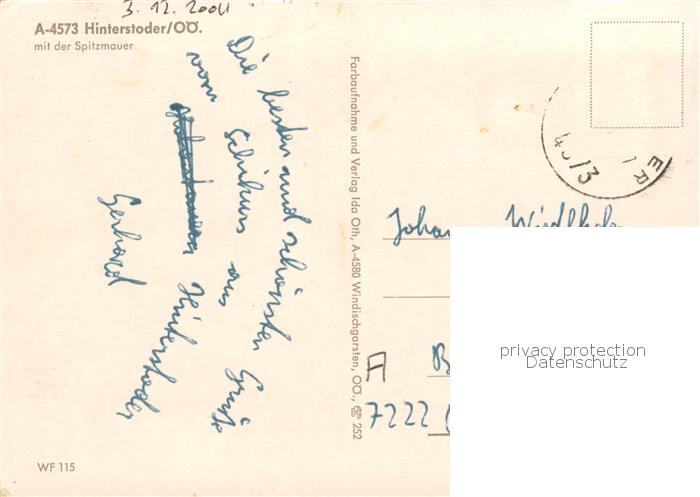 3. 12. 2004
A-4573 Hinterstoder/OÖ.
mit der Spitzmauer
Die besten und schönsten Grüße
vom Schikurs aus
Hinterstoder
Gerhard
Farbaufnahme und Verlag Ida Oth, A-4580 Windischgarsten, OÖ., ☎ 252
4573
ER
A
7222
privacy protection
Datenschutz
WF 115